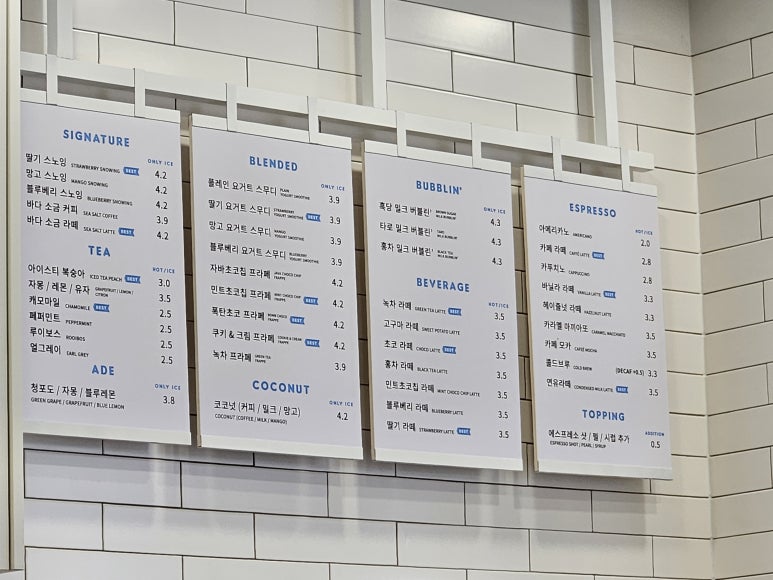 SIGNATURE
ONLY ICE
딸기 스노잉 STRAWBERRY SNOWING BEST 4.2
망고 스노잉 MANGO SNOWING 4.2
블루베리 스노잉 BLUEBERRY SNOWING 4.2
바다 소금 커피 SEA SALT COFFEE 3.9
바다 소금 라떼 SEA SALT LATTE BEST 4.2
TEA
HOT/ICE
아이스티 복숭아 ICED TEA PEACH BEST 3.0
자몽 / 레몬 / 유자 GRAPEFRUIT / LEMON / CITRON 3.5
캐모마일 CHAMOMILE BEST 2.5
페퍼민트 PEPPERMINT 2.5
루이보스 ROOIBOS 2.5
얼그레이 EARL GREY 2.5
ADE
ONLY ICE
청포도 / 자몽 / 블루레몬 3.8
GREEN GRAPE / GRAPEFRUIT / BLUE LEMON
BLENDED
ONLY ICE
플레인 요거트 스무디 PLAIN YOGURT SMOOTHIE 3.9
딸기 요거트 스무디 STRAWBERRY YOGURT SMOOTHIE BEST 3.9
망고 요거트 스무디 MANGO YOGURT SMOOTHIE 3.9
블루베리 요거트 스무디 BLUEBERRY YOGURT SMOOTHIE 3.9
자바초코칩 프라페 JAVA CHOCO CHIP FRAPPE 4.2
민트초코칩 프라페 MINT CHOCO CHIP FRAPPE BEST 4.2
폭탄초코 프라페 BOMB CHOCO FRAPPE BEST 4.2
쿠키 & 크림 프라페 COOKIE & CREAM FRAPPE BEST 4.2
녹차 프라페 GREEN TEA FRAPPE 3.9
COCONUT
ONLY ICE
코코넛 (커피 / 밀크 / 망고) 4.2
COCONUT (COFFEE / MILK / MANGO)
BUBBLIN'
ONLY ICE
흑당 밀크 버블린' BROWN SUGAR MILK BUBBLIN' 4.3
타로 밀크 버블린' TARO MILK BUBBLIN' 4.3
홍차 밀크 버블린' BLACK TEA MILK BUBBLIN' 4.3
BEVERAGE
HOT/ICE
녹차 라떼 GREEN TEA LATTE BEST 3.5
고구마 라떼 SWEET POTATO LATTE 3.5
초코 라떼 CHOCO LATTE BEST 3.5
홍차 라떼 BLACK TEA LATTE 3.5
민트초코칩 라떼 MINT CHOCO CHIP LATTE 3.5
블루베리 라떼 BLUEBERRY LATTE 3.5
딸기 라떼 STRAWBERRY LATTE BEST 3.5
ESPRESSO
HOT/ICE
아메리카노 AMERICANO 2.0
카페 라떼 CAFFE LATTE BEST 2.8
카푸치노 CAPPUCCINO 2.8
바닐라 라떼 VANILLA LATTE BEST 3.3
헤이즐넛 라떼 HAZELNUT LATTE 3.3
카라멜 마끼아또 CARAMEL MACCHIATO 3.5
카페 모카 CAFFE MOCHA 3.5
콜드브루 COLD BREW (DECAF +0.5) 3.3
연유라떼 CONDENSED MILK LATTE BEST 3.5
TOPPING
ADDITION
에스프레소 샷 / 펄 / 시럽 추가 0.5
ESPRESSO SHOT / PEARL / SYRUP